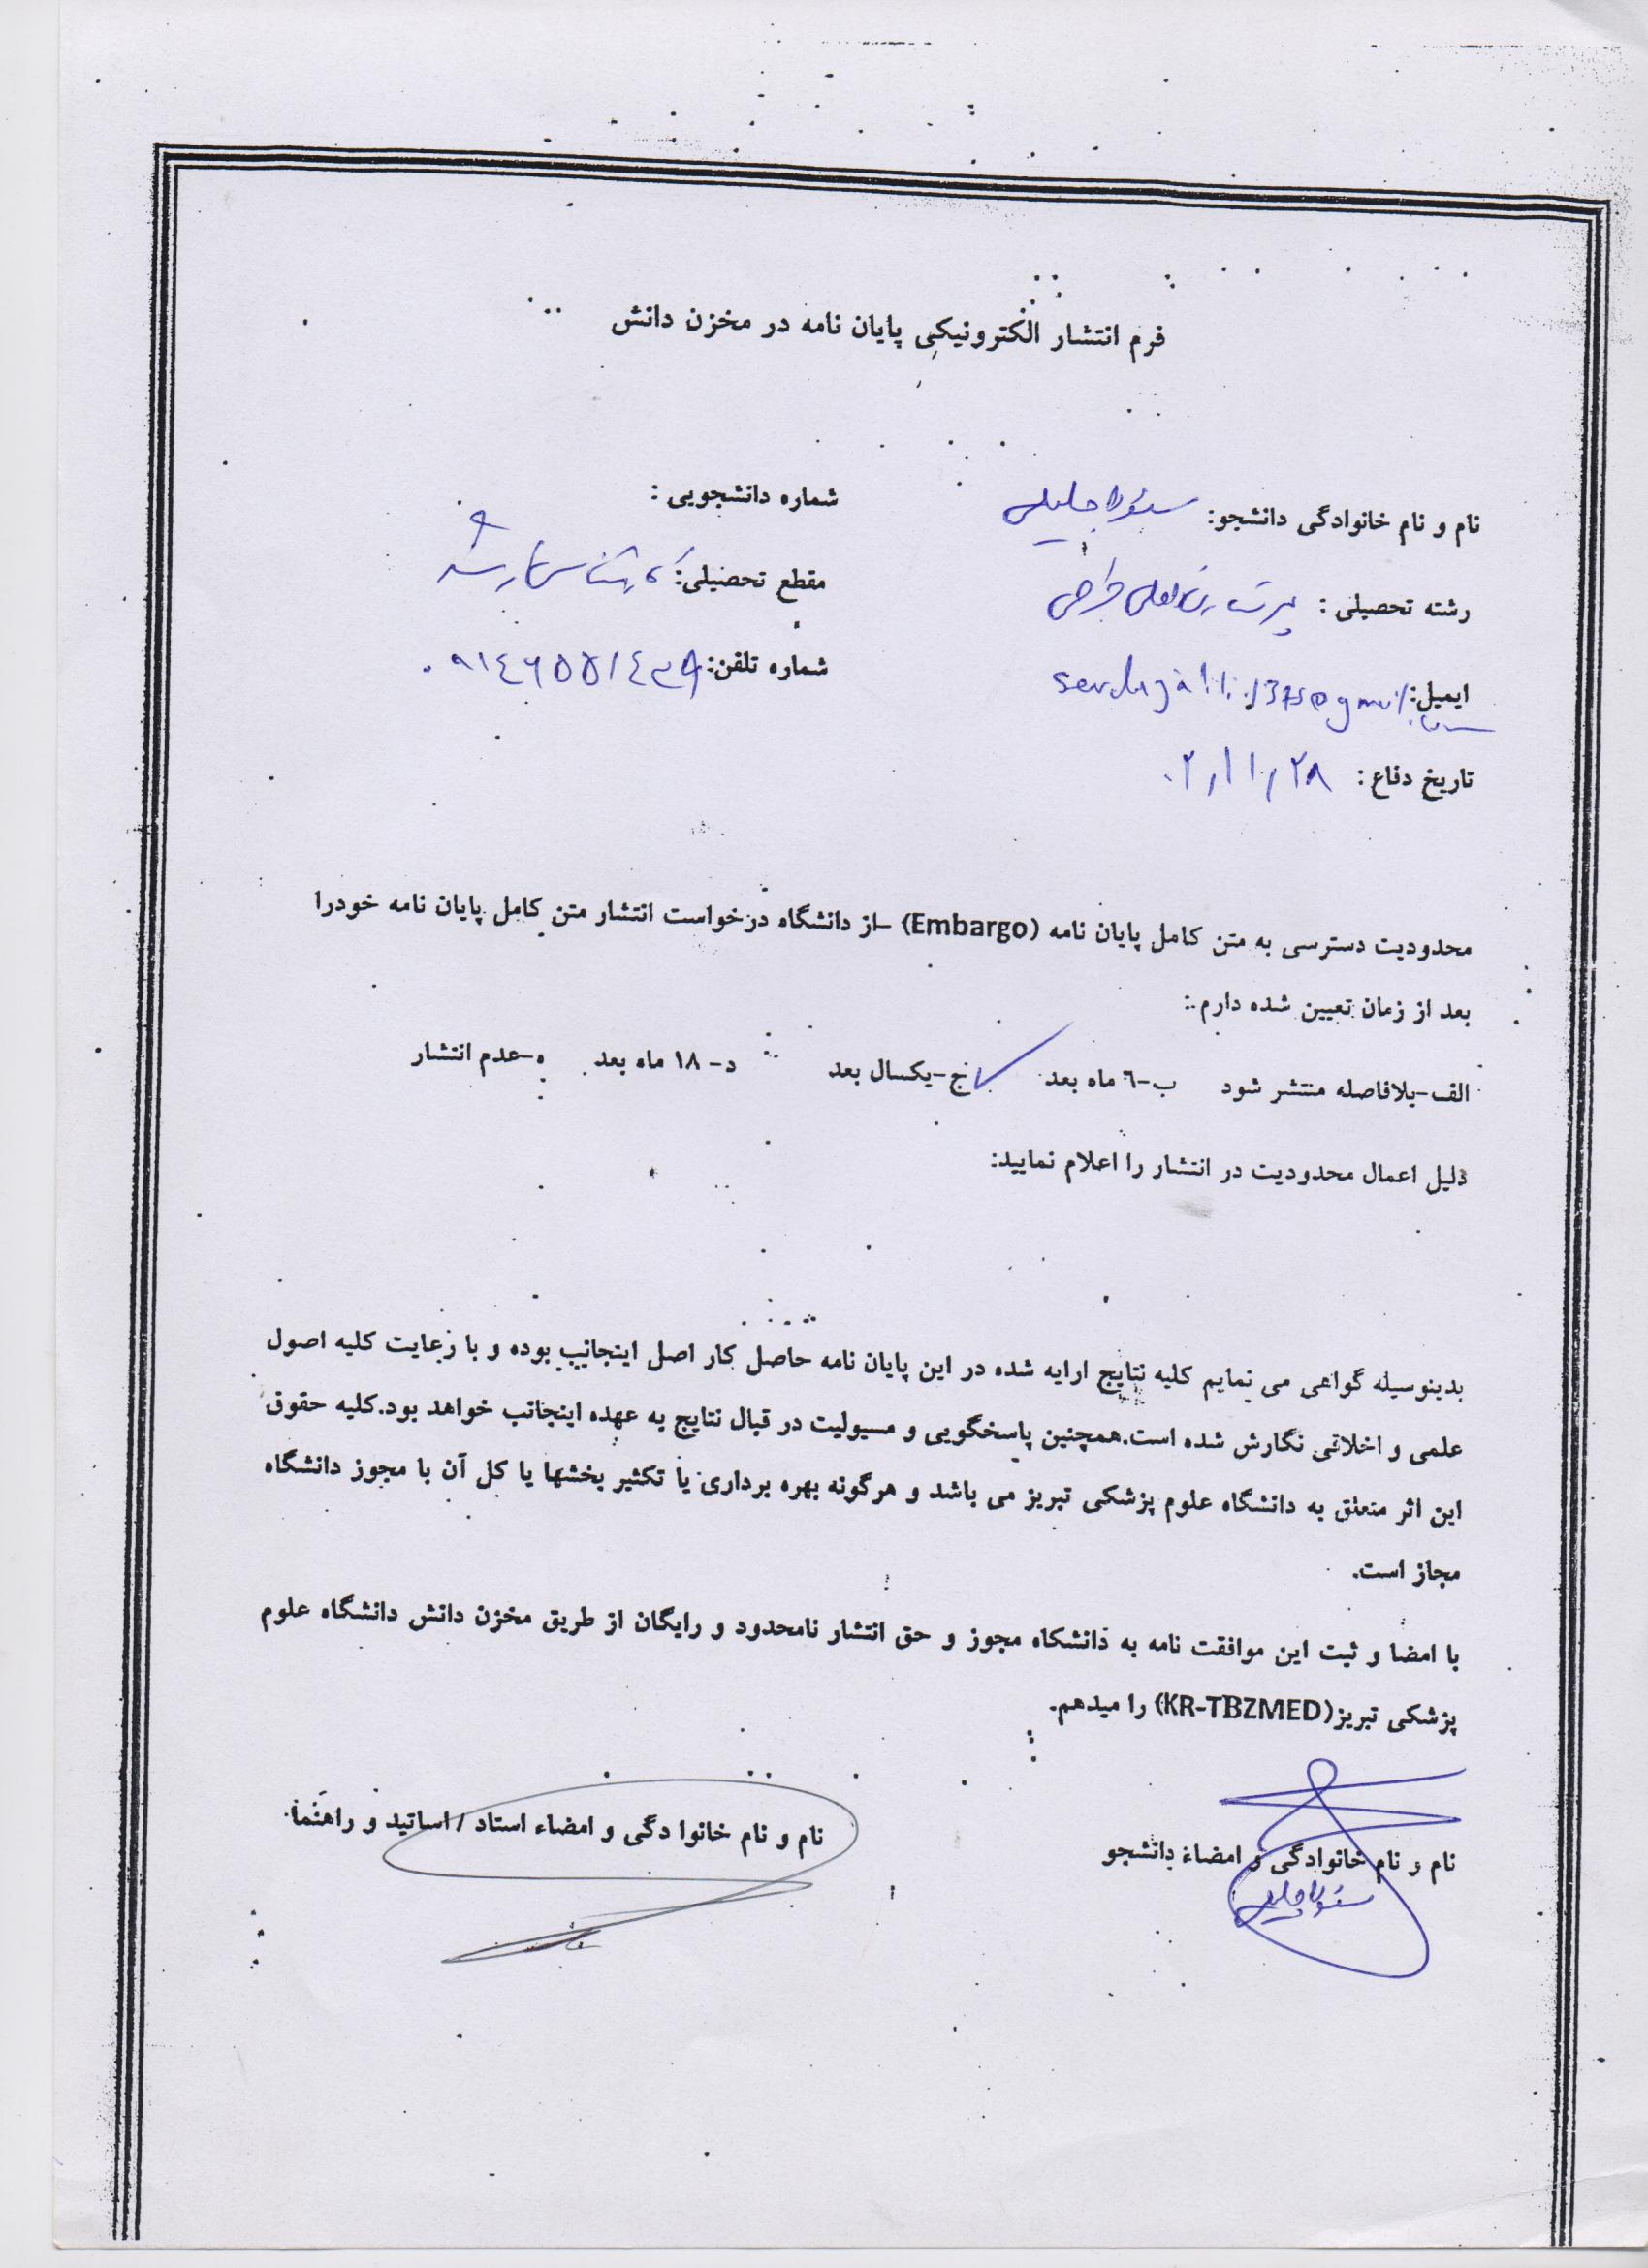 فرم انتشار الکترونیکی پایان نامه در مخزن دانش
نام و نام خانوادگی دانشجو: جلیلی
شماره دانشجویی :
رشته تحصیلی : پرستاری داخلی جراحی
مقطع تحصیلی: کارشناسی ارشد
ایمیل:
شماره تلفن:
تاریخ دفاع: ۰۲/۱۱/۲۸
محدودیت دسترسی به متن کامل پایان نامه (Embargo) –از دانشگاه درخواست انتشار متن کامل پایان نامه خودرا
بعد از زمان تعیین شده دارم.:
الف-بلافاصله منتشر شود ب-٦ ماه بعد ج-یکسال بعد د- ١٨ ماه بعد ه-عدم انتشار
دلیل اعمال محدودیت در انتشار را اعلام نمایید:
بدینوسیله گواهی می نمایم کلیه نتایج ارایه شده در این پایان نامه حاصل کار اصل اینجانب بوده و با رعایت کلیه اصول
علمی و اخلاقی نگارش شده است.همچنین پاسخگویی و مسیولیت در قبال نتایج به عهده اینجانب خواهد بود.کلیه حقوق
این اثر متعلق به دانشگاه علوم پزشکی تبریز می باشد و هرگونه بهره برداری یا تکثیر بخشها یا کل آن با مجوز دانشگاه
مجاز است.
با امضا و ثبت این موافقت نامه به دانشکاه مجوز و حق انتشار نامحدود و رایگان از طریق مخزن دانش دانشگاه علوم
پزشکی تبریز(KR-TBZMED) را میدهم.
نام و نام خانوادگی و امضاء دانشجو
نام و نام خانوا دگی و امضاء استاد / اساتید و راهنما
جلیلی